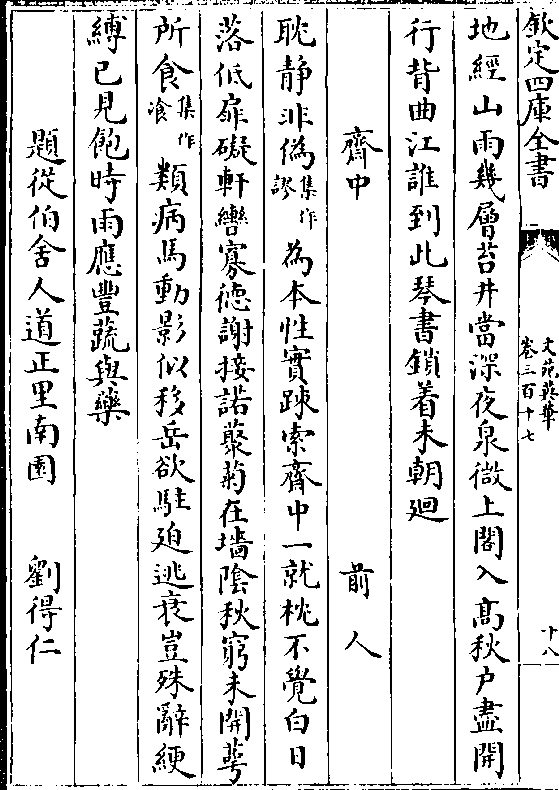 欽定四庫全書
文苑英華
卷三百十七
十八
地經山雨幾層苔井當深夜泉微上閣入高秋户盡開
行背曲江誰到此琴書鎖着未朝廻
齋中
前人
耽静非僞集作謬為本性實踈索齋中一就枕不覺白日
落低扉礙軒轡寡德謝接諾藂菊在墻陰秋窮未開萼
所食集作飡類病馬動影似移岳欲駐廹逃衰豈殊辭綆
縛已見飽時雨應豐蔬與藥
題從伯舍人道正里南園
劉得仁